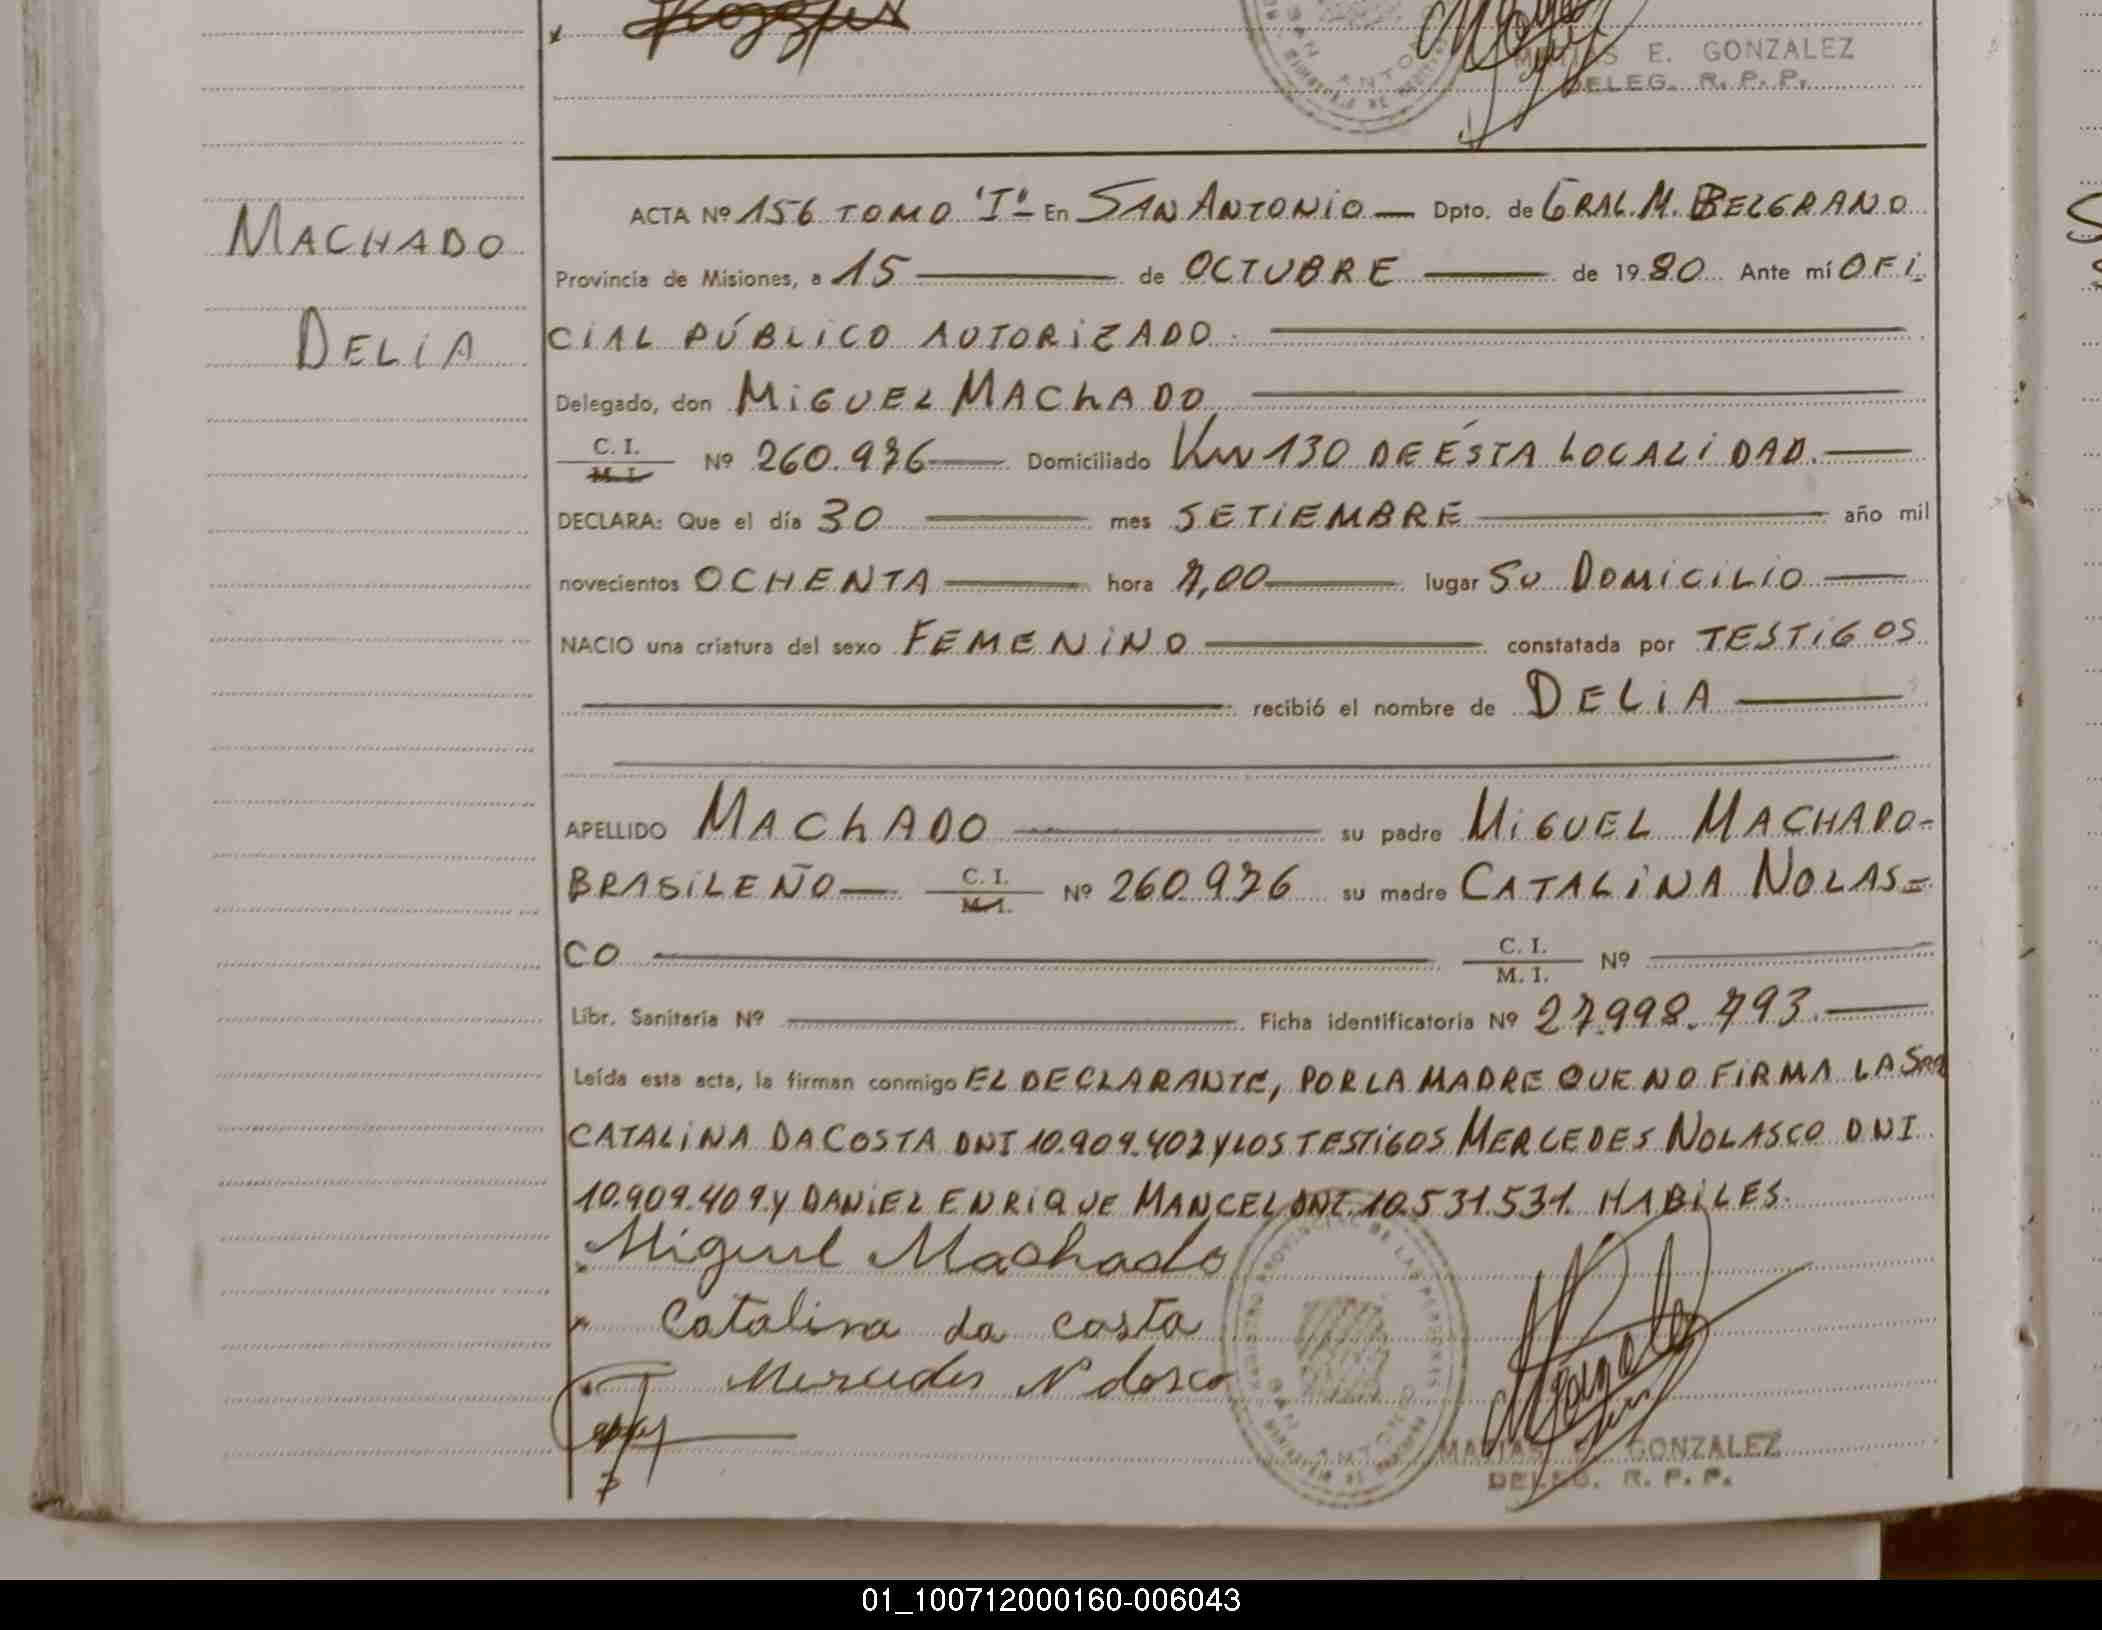 MATIAS E. GONZALEZ
DELEG. R. P. P.
MACHADO
DELIA
ACTA Nº 156 TOMO "I" En SAN ANTONIO — Dpto. de GRAL. M. BELGRANO
Provincia de Misiones, a 15 — de OCTUBRE — de 1980 Ante mí OFI
CIAL PÚBLICO AUTORIZADO
Delegado, don MIGUEL MACHADO
C. I. / M. I. Nº 260.976 — Domiciliado Km 130 DE ÉSTA LOCALIDAD. —
DECLARA: Que el día 30 — mes SETIEMBRE — año mil
novecientos OCHENTA — hora 7,00 — lugar SU DOMICILIO —
NACIO una criatura del sexo FEMENINO — constatada por TESTIGOS
— recibió el nombre de DELIA —
APELLIDO MACHADO — su padre MIGUEL MACHADO-
BRASILEÑO — C. I. / M. I. Nº 260.976 su madre CATALINA NOLAS=
CO — C. I. / M. I. Nº —
Libr. Sanitaria Nº — Ficha identificatoria Nº 27.998.793. —
Leída esta acta, la firman conmigo EL DECLARANTE, POR LA MADRE QUE NO FIRMA LA SRA
CATALINA DA COSTA DNI 10.909.402 Y LOS TESTIGOS MERCEDES NOLASCO DNI
10.909.409 Y DANIEL ENRIQUE MANCEL DNI. 10.531.531. HABILES.
Miguel Machado
Catalina da costa
Mercedes Nolasco
MATIAS E. GONZALEZ
DELEG. R. P. P.
01_100712000160-006043